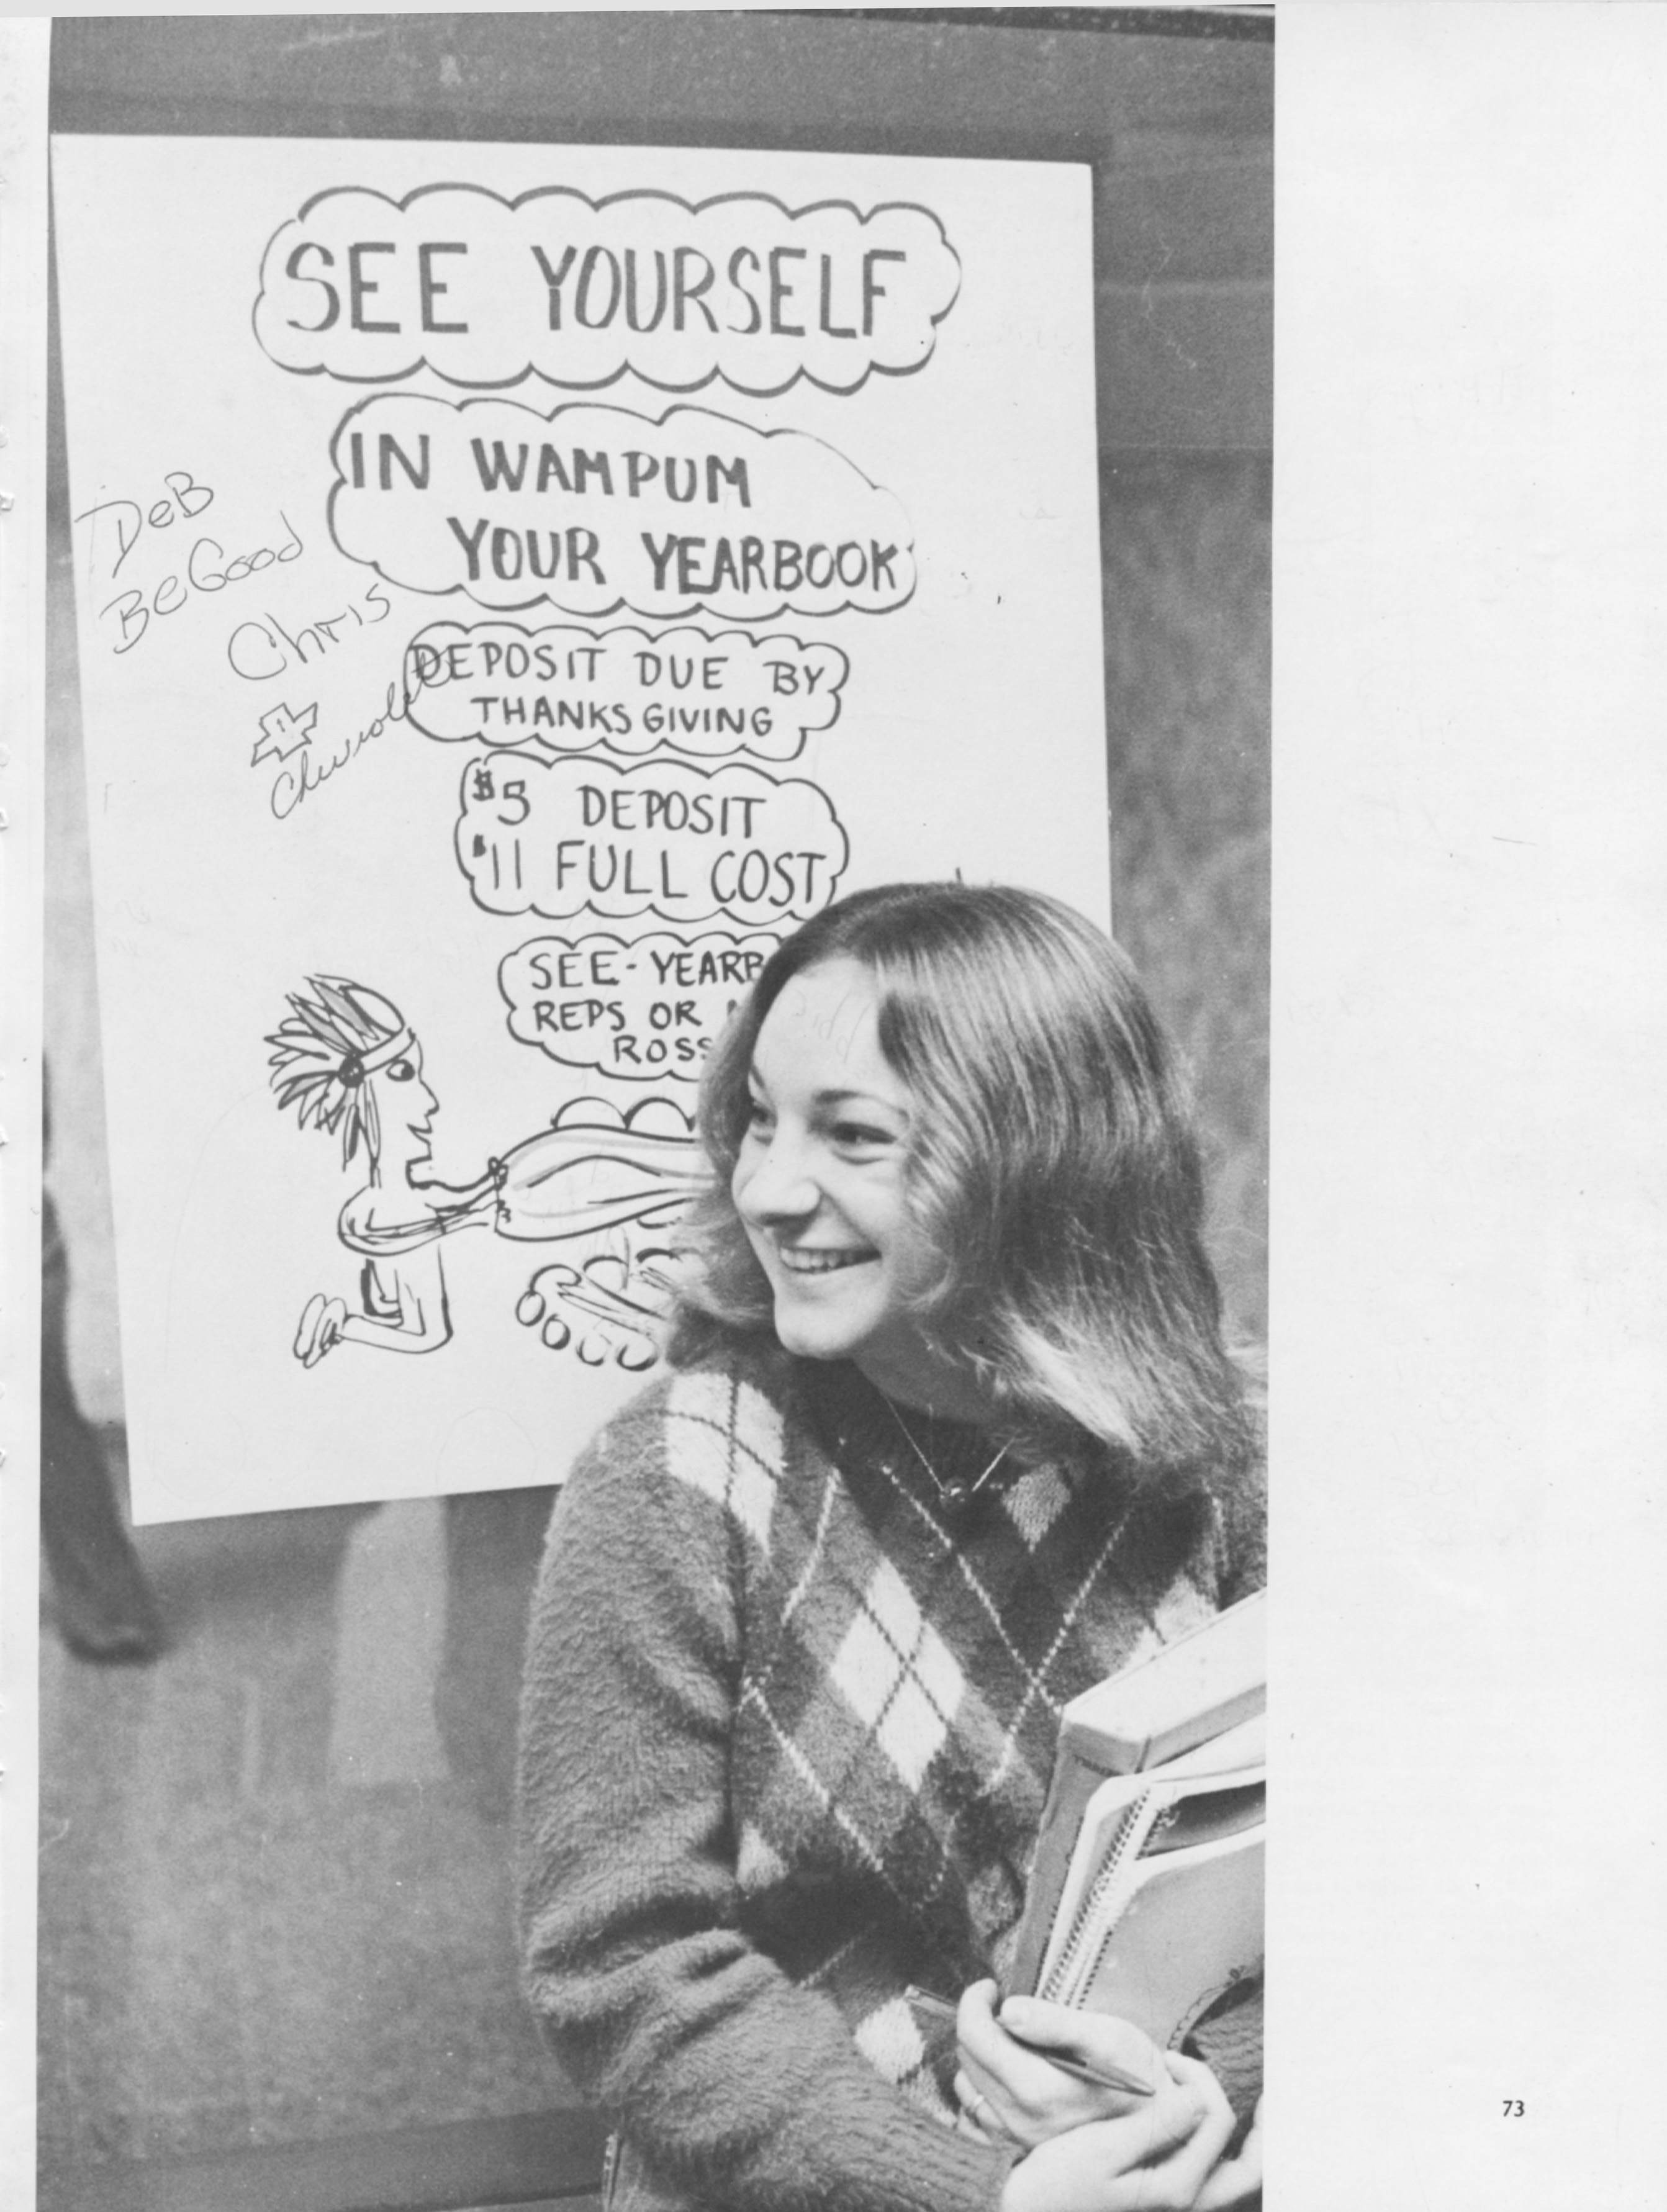 SEE YOURSELF
IN WAMPUM
YOUR YEARBOOK
DeB
Be Good
Chris
Chevrolet
DEPOSIT DUE BY
THANKSGIVING
$5 DEPOSIT
$11 FULL COST
SEE-YEARB
REPS OR
ROSS
73